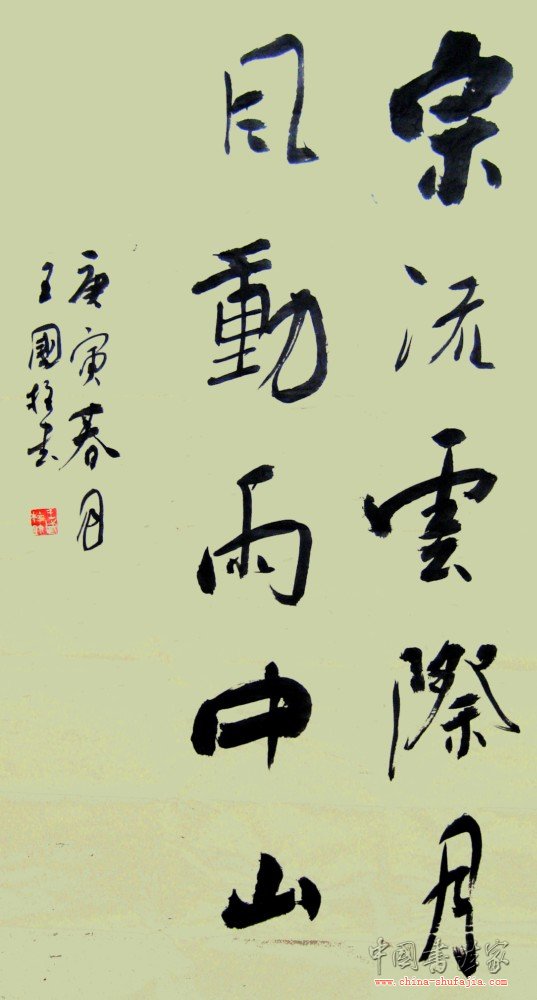 泉流雲際月
風動雨中山
庚寅春月
王國柱書
中國書法家
www.china-shufajia.com